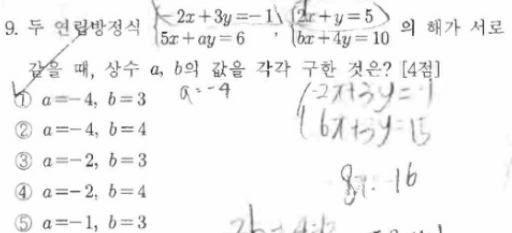 9. 두 연립방정식 { -2x+3y=-1 , { 2x+y=5 의 해가 서로
5x+ay=6 bx+4y=10
같을 때, 상수 a, b의 값을 각각 구한 것은? [4점]
① a=-4, b=3
a=-4
-2x+3y=-1
② a=-4, b=4
6x+3y=15
③ a=-2, b=3
8x=16
④ a=-2, b=4
⑤ a=-1, b=3